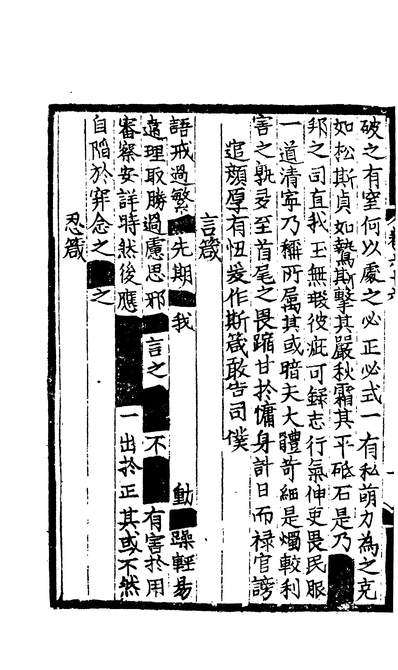 破之有窒何以處之必正必式一有私萌力為之克
如松斯貞如鷙斯擊其嚴秋霜其平砥石是乃
邦之司直我王無瑕彼疵可錄志行氣伸吏畏民服
一道清寧乃稱所屬其或暗夫大體苛細是燭較利
害之孰多至首尾之畏踏甘於慵身計日而祿官謗
逭顏厚有忸爰作斯箴敢告司僕
言箴
語戒過繁先期我動躁輕易
違理取勝過慮思邪言之不有害於用
審察安詳時然後應一出於正其或不然
自陷於穽念之之
忍箴